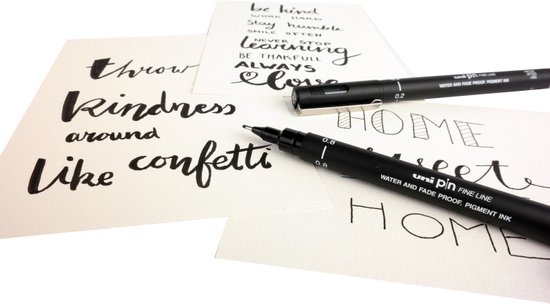 be kind
WORK HARD
Stay humble
SMILE OFTEN
NEVER STOP
learning
BE THAKFULL
ALWAYS
love
throw
kindness
around
like confetti
HOME
sweet
HOME
uni pin FINE LINE
WATER AND FADE PROOF, PIGMENT INK
0.2
0.8
0.8
uni pin FINE LINE
WATER AND FADE PROOF, PIGMENT INK